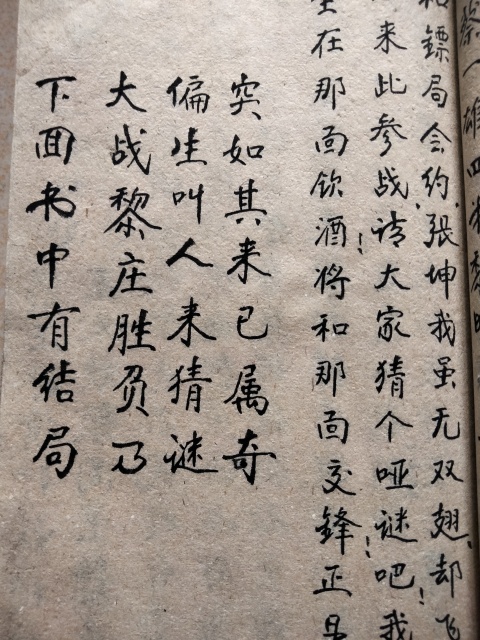 一雄四
和镖局会约,张坤我虽无双翅,却飞
来此参战,请大家猜个哑谜吧!我
在那面饮酒!将和那面交锋!正
突如其来已属奇
偏生叫人来猜谜
大战黎庄胜负乃
下面书中有结局